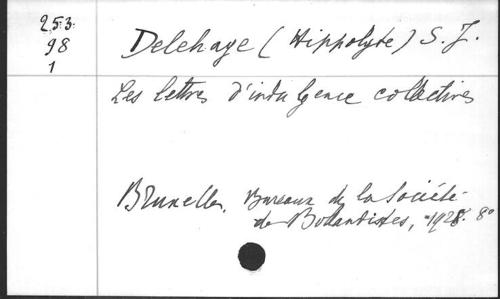 253.
98
1
Delehaye (Hippolyte) S.J.
Les lettres d'indulgence collectives
Bruxelles, Bureaux de la Société
des Bollandistes, 1928. 8º